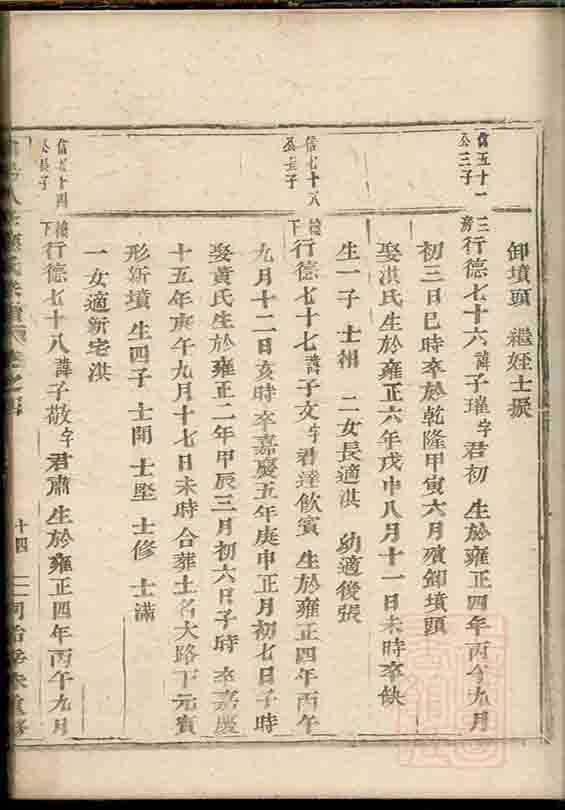 卸墳頭 繼姪士振
信五十一公三子 三房行德七十六諱子璀字君初 生於雍正四年丙午九月
初三日巳時卒於乾隆甲寅六月殯卸墳頭
娶洪氏生於雍正六年戊申八月十一日未時卒缺
生一子 士楫 二女長適洪 幼適後張
信七十八公長子 下行德七十七諱子文字君達飲賓 生於雍正四年丙午
九月十二日亥時卒嘉慶五年庚申正月初七日子時
娶黃氏生於雍正二年甲辰三月初六日子時卒嘉慶
十五年庚午九月十七日未時合葬土名大路下元寶
形新墳 生四子 士開 士堅 士修 士滿
一女適新宅洪
信七十四公長子 下行德七十八諱子敬字君肅 生於雍正四年丙午九月
十四 同治辛未重修